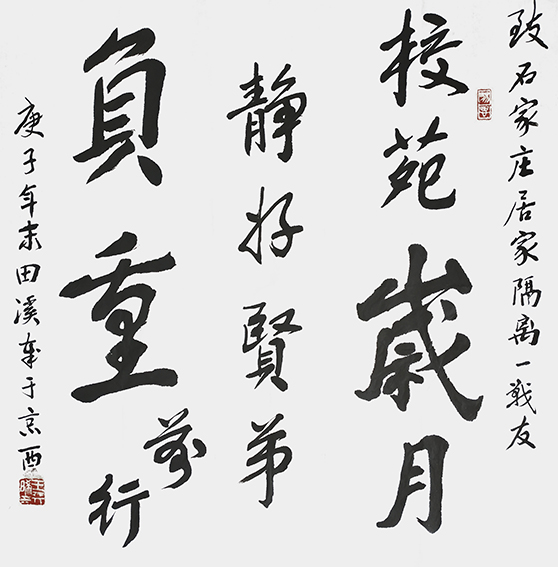 致石家庄居家隔离一戰友
校苑歲月
静好賢弟
負重前行
庚子年末田溪于京西